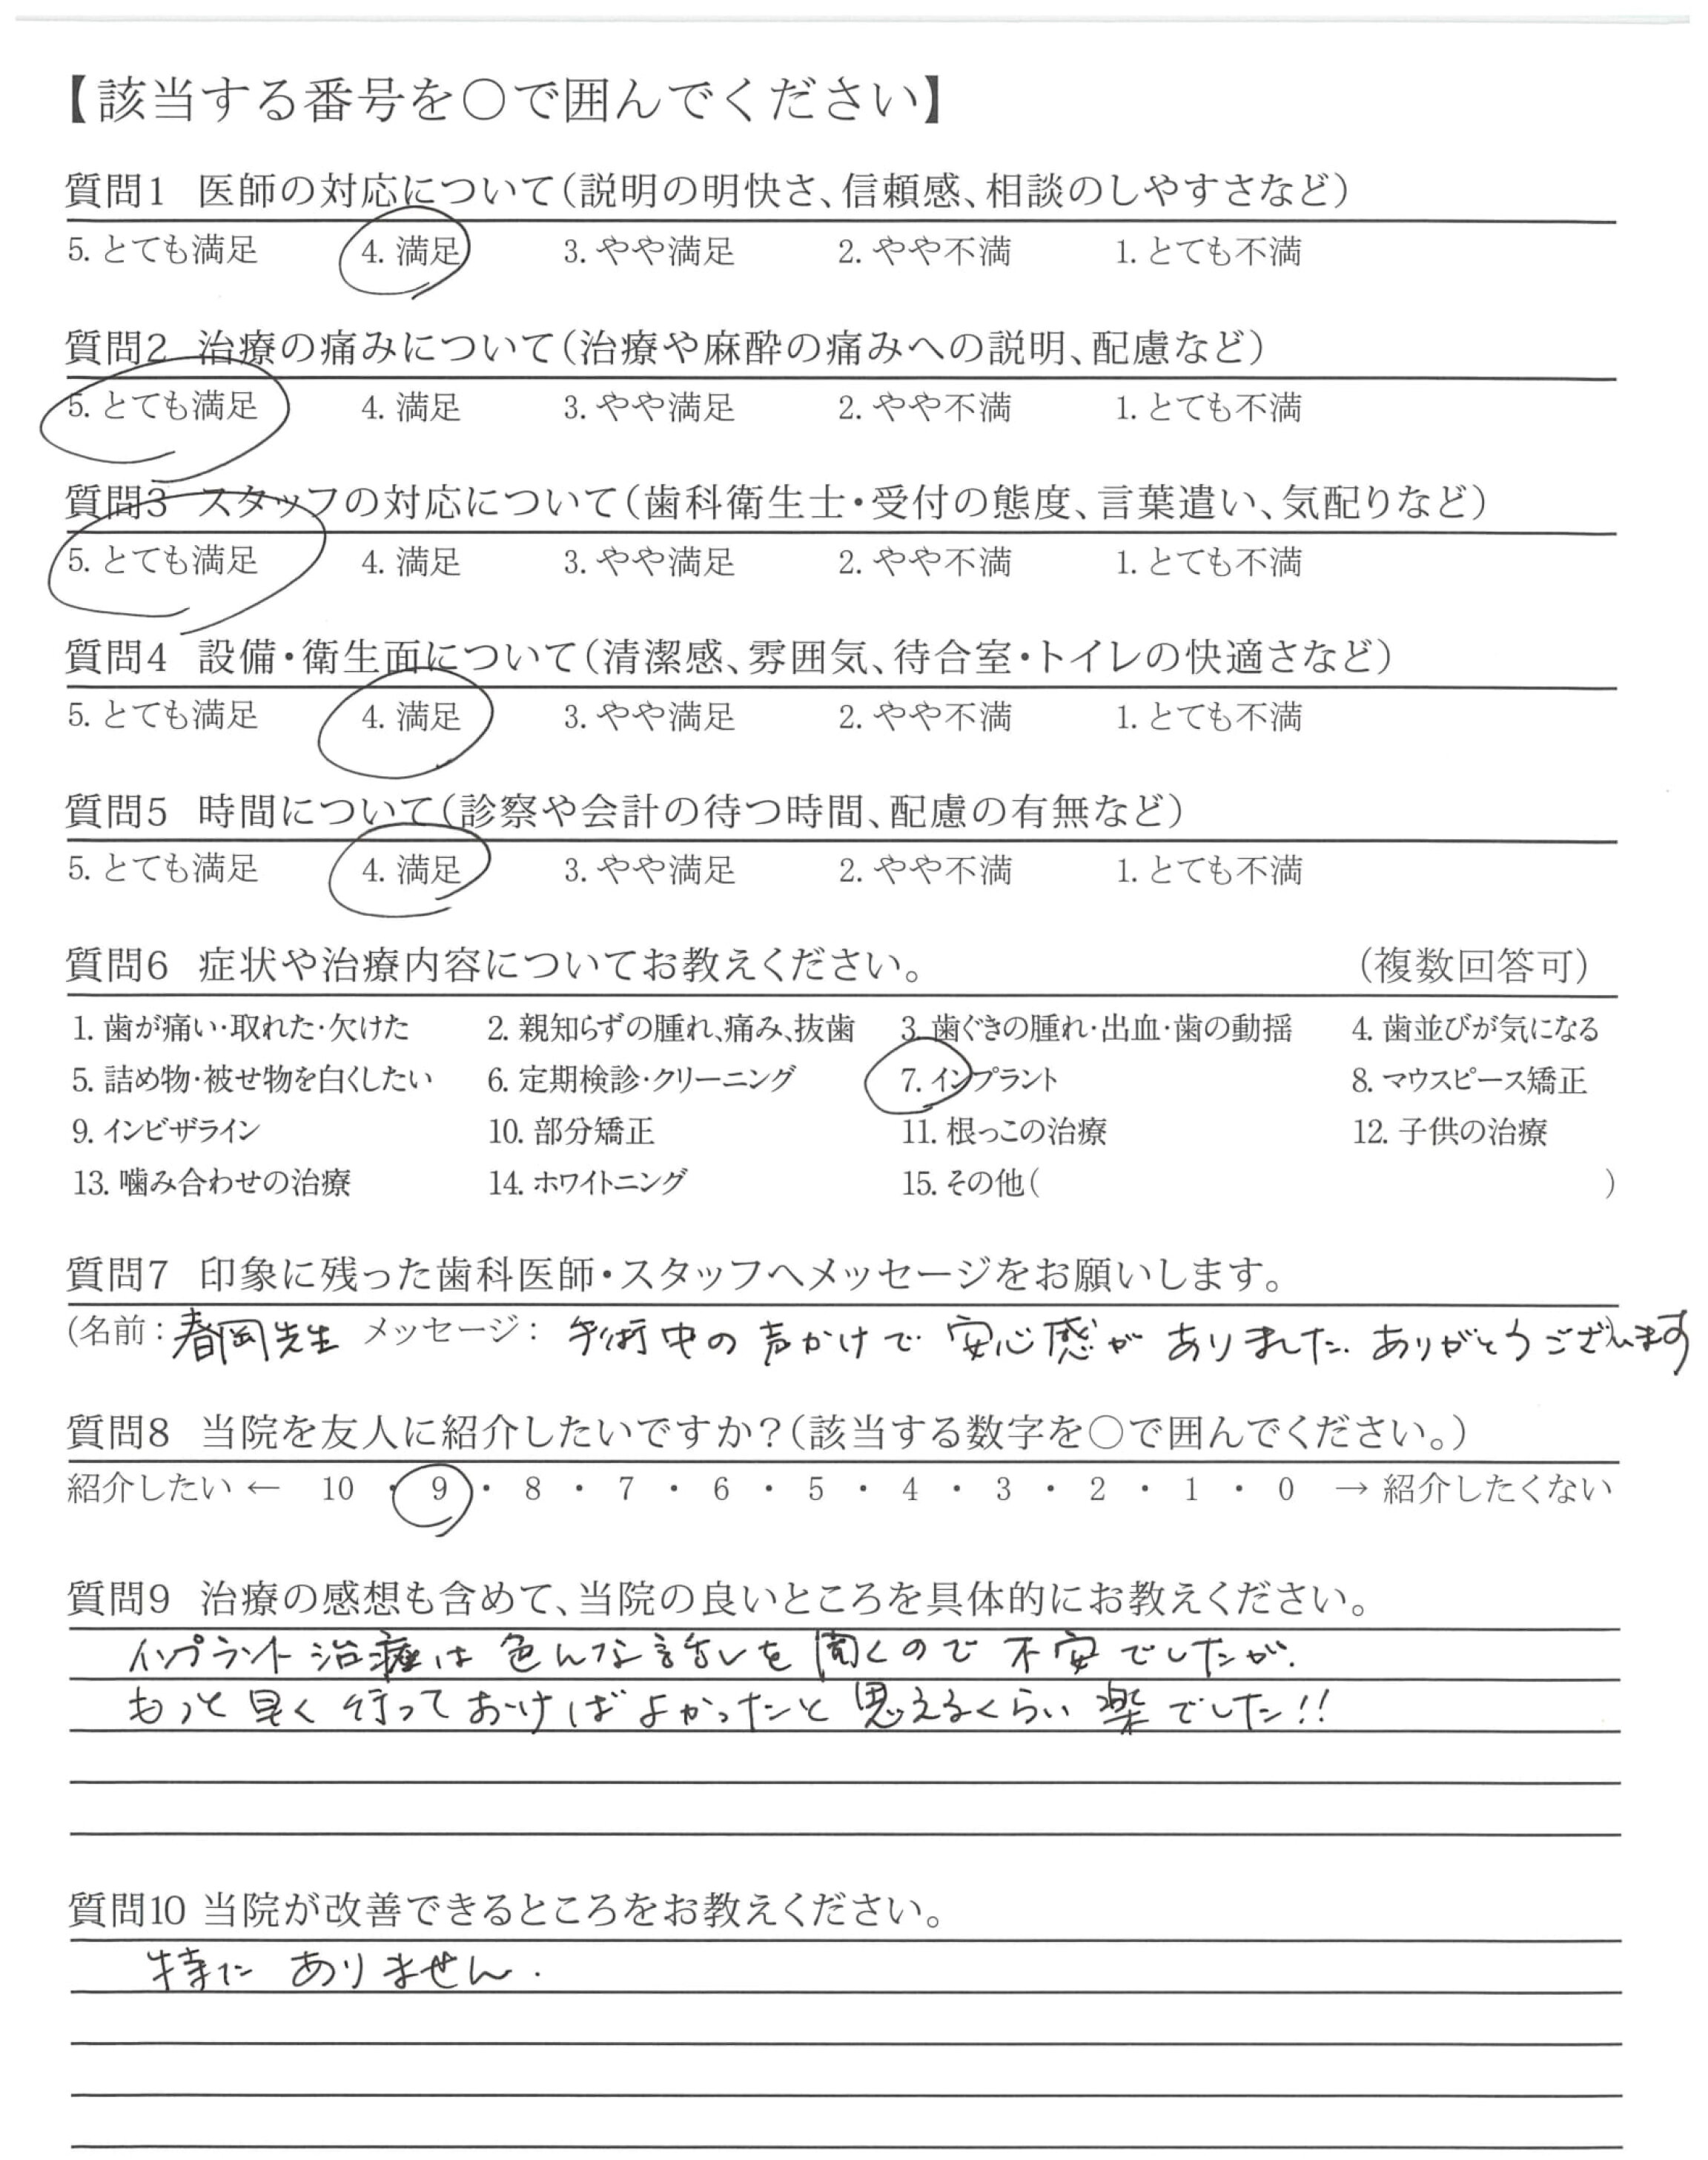 【該当する番号を○で囲んでください】
質問1 医師の対応について(説明の明快さ、信頼感、相談のしやすさなど)
5. とても満足 4. 満足 3. やや満足 2. やや不満 1. とても不満
質問2 治療の痛みについて(治療や麻酔の痛みへの説明、配慮など)
5. とても満足 4. 満足 3. やや満足 2. やや不満 1. とても不満
質問3 スタッフの対応について(歯科衛生士・受付の態度、言葉遣い、気配りなど)
5. とても満足 4. 満足 3. やや満足 2. やや不満 1. とても不満
質問4 設備・衛生面について(清潔感、雰囲気、待合室・トイレの快適さなど)
5. とても満足 4. 満足 3. やや満足 2. やや不満 1. とても不満
質問5 時間について(診察や会計の待つ時間、配慮の有無など)
5. とても満足 4. 満足 3. やや満足 2. やや不満 1. とても不満
質問6 症状や治療内容についてお教えください。 (複数回答可)
1. 歯が痛い・取れた・欠けた 2. 親知らずの腫れ、痛み、抜歯 3. 歯ぐきの腫れ・出血・歯の動揺 4. 歯並びが気になる
5. 詰め物・被せ物を白くしたい 6. 定期検診・クリーニング 7. インプラント 8. マウスピース矯正
9. インビザライン 10. 部分矯正 11. 根っこの治療 12. 子供の治療
13. 噛み合わせの治療 14. ホワイトニング 15. その他( )
質問7 印象に残った歯科医師・スタッフへメッセージをお願いします。
(名前：春岡先生 メッセージ： 手術中の声かけで安心感がありました。ありがとうございます
質問8 当院を友人に紹介したいですか？(該当する数字を○で囲んでください。)
紹介したい ← 10 ・ 9 ・ 8 ・ 7 ・ 6 ・ 5 ・ 4 ・ 3 ・ 2 ・ 1 ・ 0 → 紹介したくない
質問9 治療の感想も含めて、当院の良いところを具体的にお教えください。
インプラント治療は色んな話しを聞くので不安でしたが、
もっと早く行っておけばよかったと思えるくらい楽でした!!
質問10 当院が改善できるところをお教えください。
特にありません.